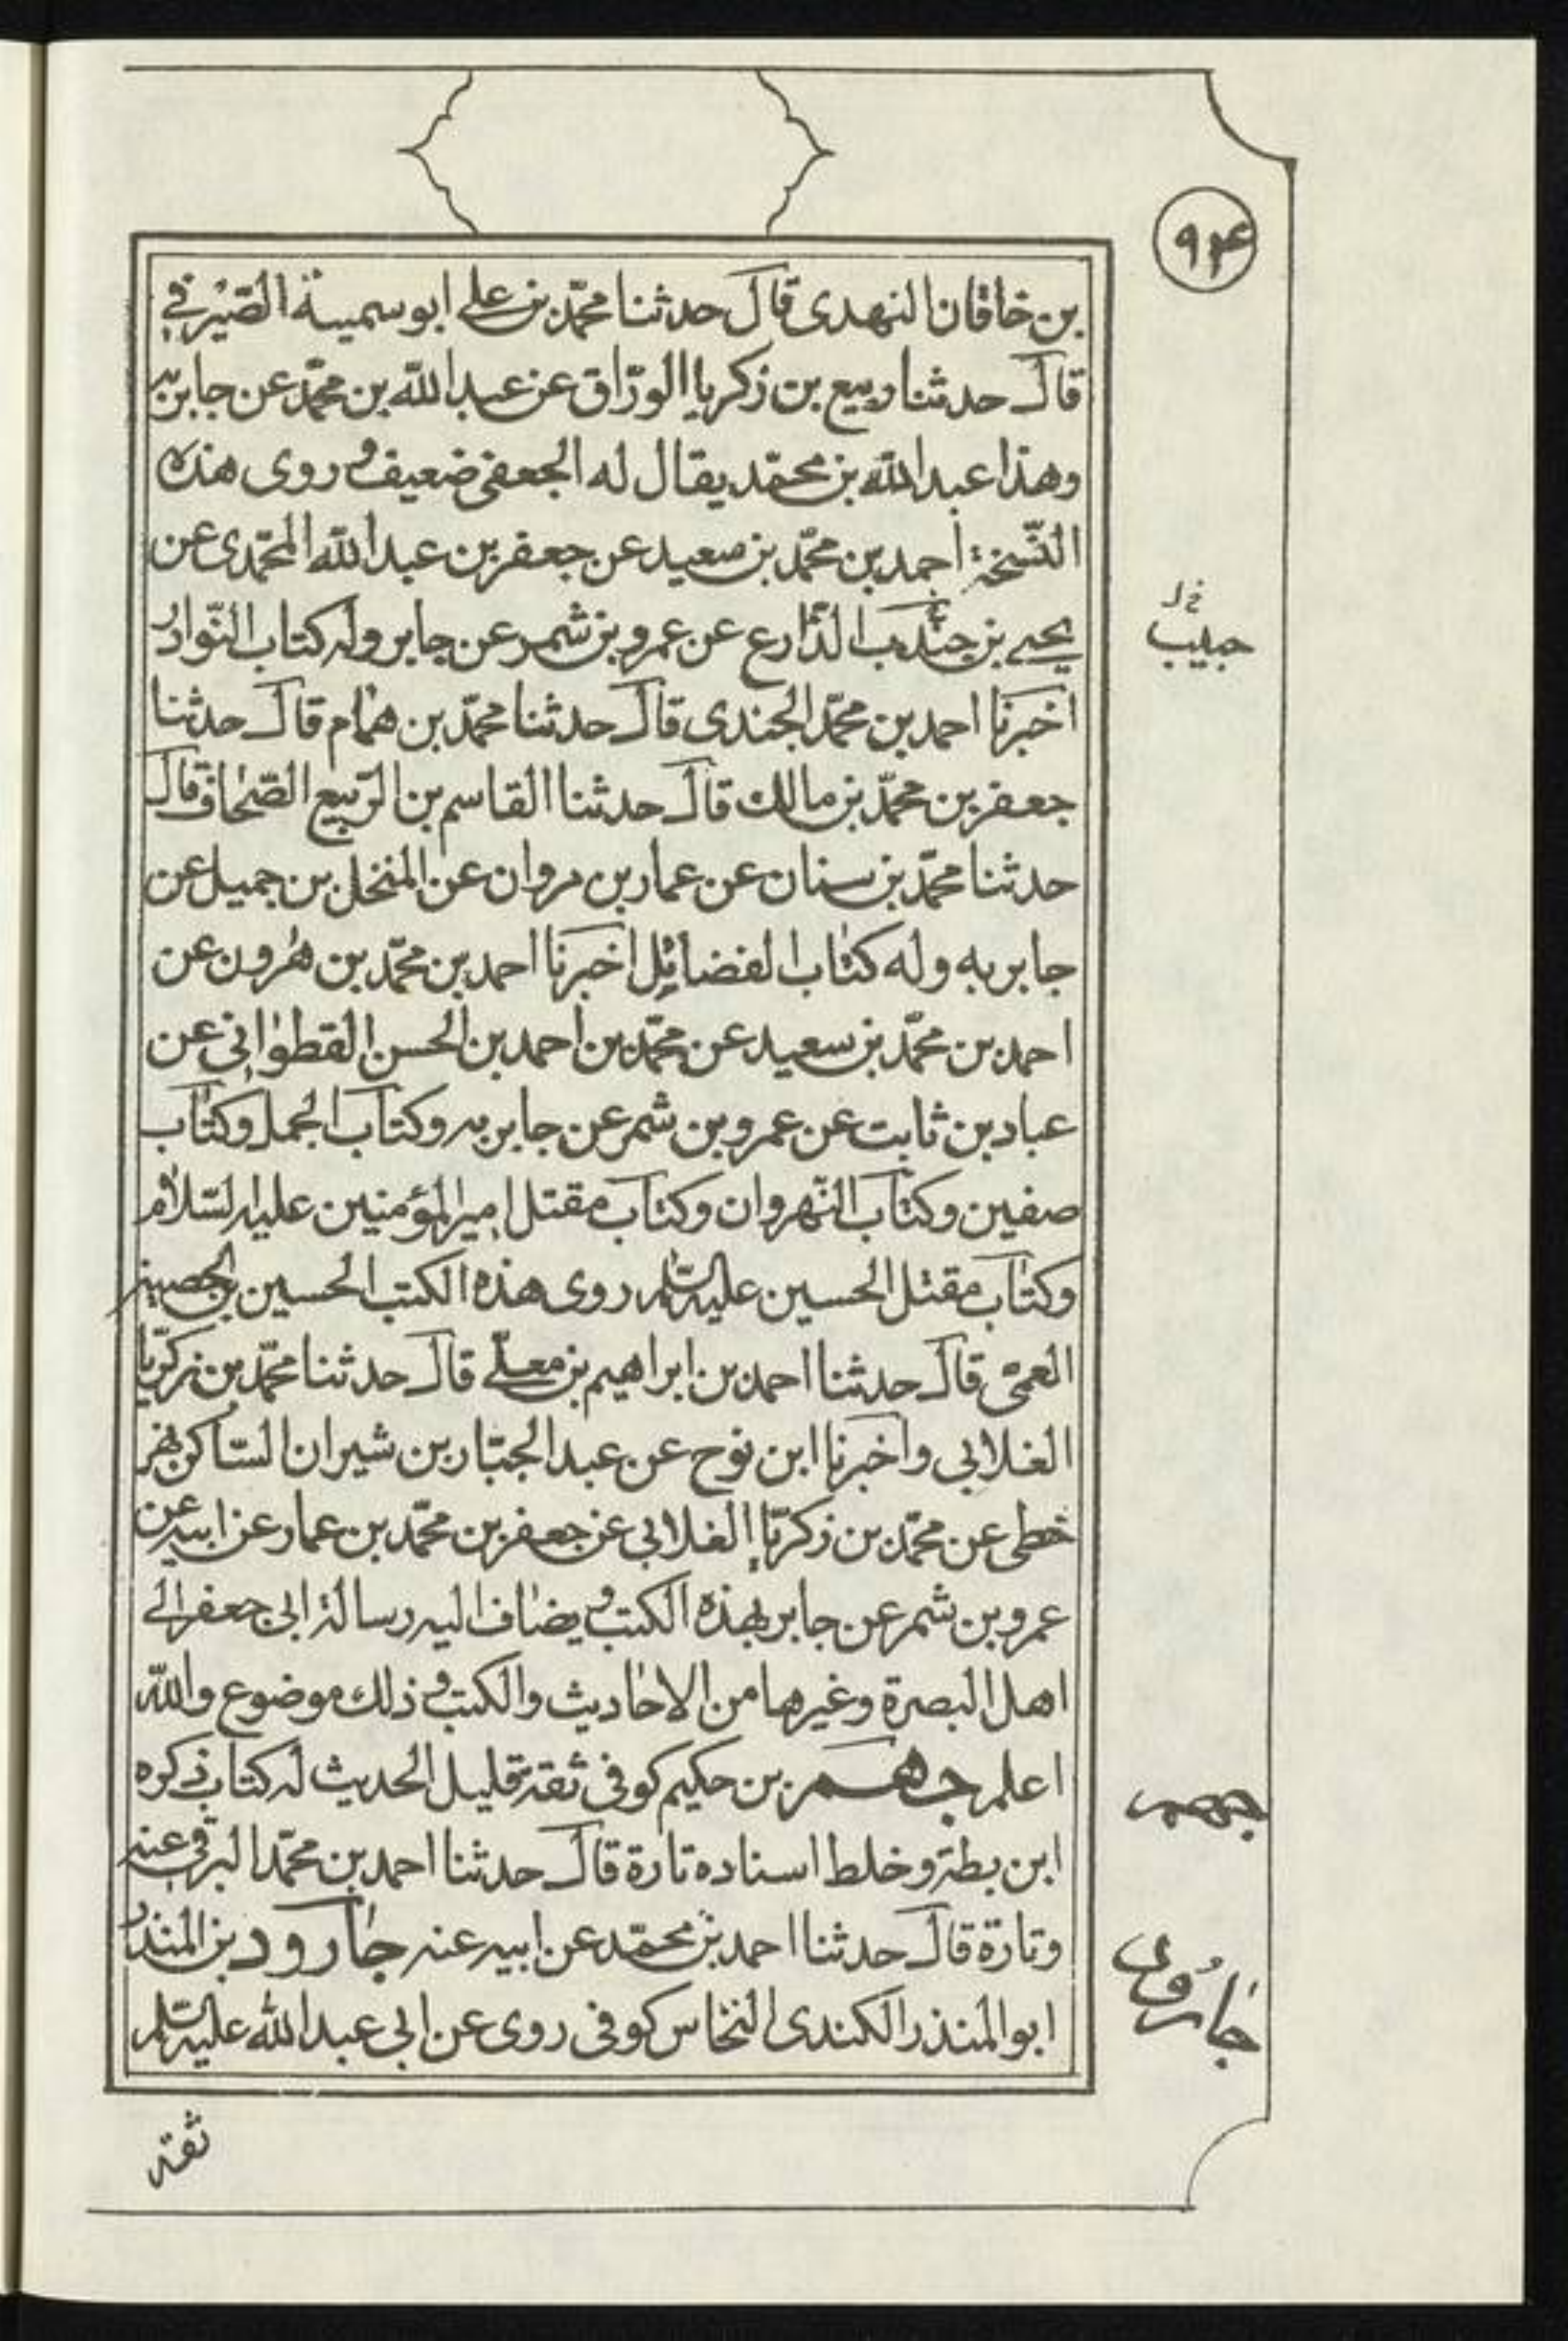 ۹۴
بن خاقان النهدى قال حدثنا محمّد بن على ابو سمينة الصّيرفي
قال حدثنا ربيع بن زكريا الورّاق عن عبد اللّه بن محمّد عن جابر به
وهذا عبد اللّه بن محمّد يقال له الجعفى ضعيف و روى هذه
النّسخة احمد بن محمّد بن سعيد عن جعفر بن عبد اللّه المحمّدى عن
يحيى بن جندب الذّارع عن عمرو بن شمر عن جابر وله كتاب النّوادر
خ ل
حبيب
اخبرنا احمد بن محمّد الجندى قال حدثنا محمّد بن همّام قال حدثنا
جعفر بن محمّد بن مالك قال حدثنا القاسم بن الرّبيع الصّحاف قال
حدثنا محمّد بن سنان عن عمار بن مروان عن المنخل بن جميل عن
جابر به وله كتاب الفضائل اخبرنا احمد بن محمّد بن هرون عن
احمد بن محمّد بن سعيد عن محمّد بن احمد بن الحسن القطوانى عن
عباد بن ثابت عن عمرو بن شمر عن جابر به وكتاب الجمل وكتاب
صفين وكتاب النّهروان وكتاب مقتل امير المؤمنين عليه السّلام
وكتاب مقتل الحسين عليه السّلم روى هذه الكتب الحسين بن الحصين
العمى قال حدثنا احمد بن ابراهيم بن معلّى قال حدثنا محمّد بن زكريّا
الغلابي واخبرنا ابن نوح عن عبد الجبّار بن شيران السّاكن نهر
خطى عن محمّد بن زكريّا الغلابى عن جعفر بن محمّد بن عمار عن ابيه عن
عمرو بن شمر عن جابر بهذه الكتب و يضاف اليه رسالة ابى جعفر الى
اهل البصرة وغيرها من الاحاديث والكتب و ذلك موضوع واللّه
اعلم جهم بن حكيم كوفى ثقة قليل الحديث له كتاب ذكره
جهم
ابن بطة وخلط اسناده تارة قال حدثنا احمد بن محمّد البرقى عنه
وتارة قال حدثنا احمد بن محمّد عن ابيه عنه جارود بن المنذر
جارود
ابو المنذر الكندى النخاس كوفى روى عن ابى عبد اللّه عليه السّلم
ثقة